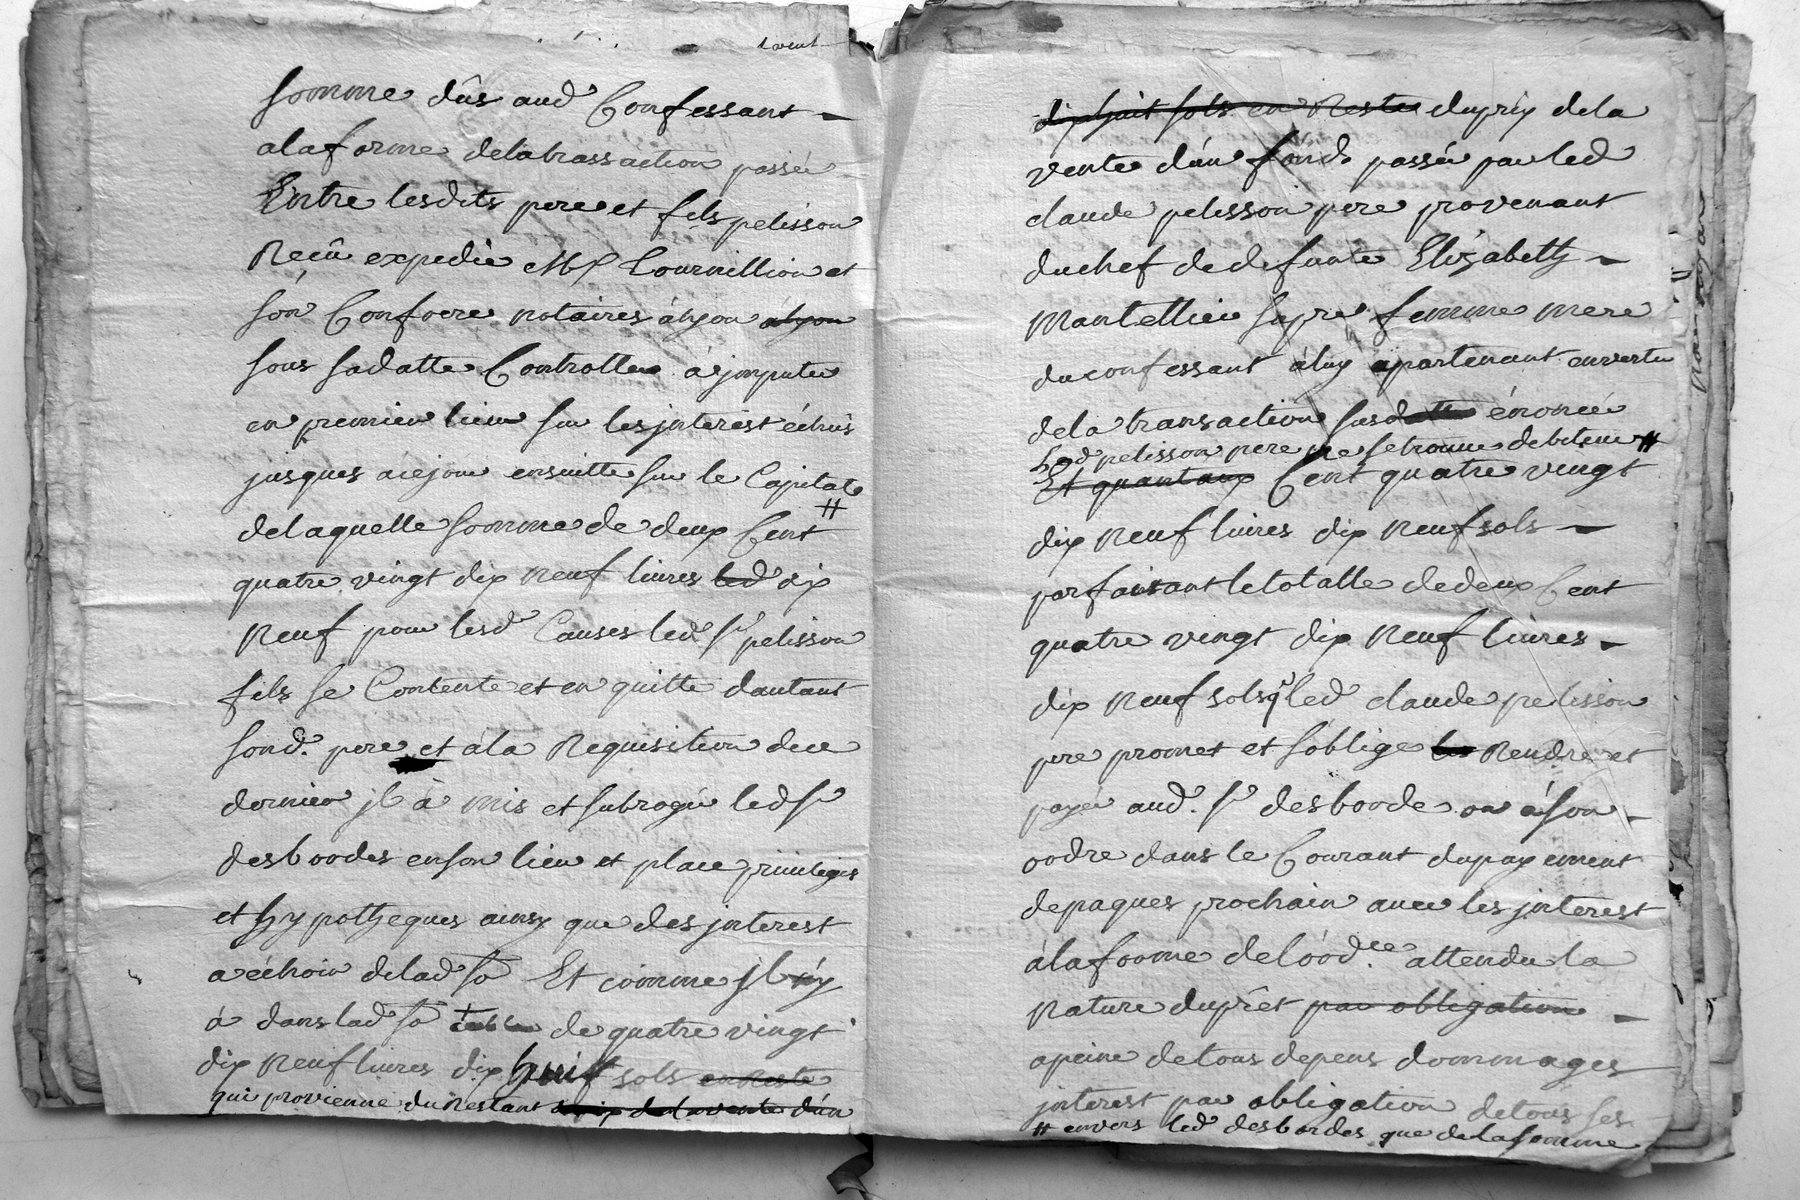 somme dûs aud Confessant
a la forme de la trassaction passée
Entre lesdits pere et fils pelisson
Reçû expedié Tournillion et
són Confrere notaires à lyon à lyon
sous sadatte Controllée à jmputer
en premier lieu sur les jnterest échus
jusques a ce jour ensuitte sur le Capital
de laquelle somme de deux Cent #
quatre vingt dix neuf livres led dix
neuf pour lesd Causes led sr pelisson
fils se Contente et en quitte dautant
sond. pere et à la Requisition de ce
dernier jl à mis et subrogé led sr
desbordes en son lieu et place privileges
et hypotheques ainsy que des jnterest
a échoir de lad so Et comme jl ny
à dans lad so de quatre vingt
dix neuf livres dix huit sols en Reste
qui provienne du Restant du prix de la vente d'un
dix huit sols en Reste du prix de la
vente d'un fonds passée par led
claude pelisson pere provenant
du chef de defunte Elizabeth
Mantellier sa pre femme mere
du confessant à luy apartenant en vertu
de la transaction susdatte énoncée
Led pelisson pere ne se trouve debiteur #
Et quant aux Cent quatre vingt
dix neuf livres dix neuf sols
parfaisant le totalle de deux Cent
quatre vingt dix neuf livres
dix neuf sols q led claude pelisson
pere promet et s'oblige les Rendre et
payer aud. sr desborde ou à son
ordre dans le Courant du payement
de paques prochain avec les jnterest
à la forme de l'órd.ce attendu la
nature du prêt par obligation
a peine de tous depens dommages
jnterest par obligation de tous ses
# envers led desbordes que de la somme